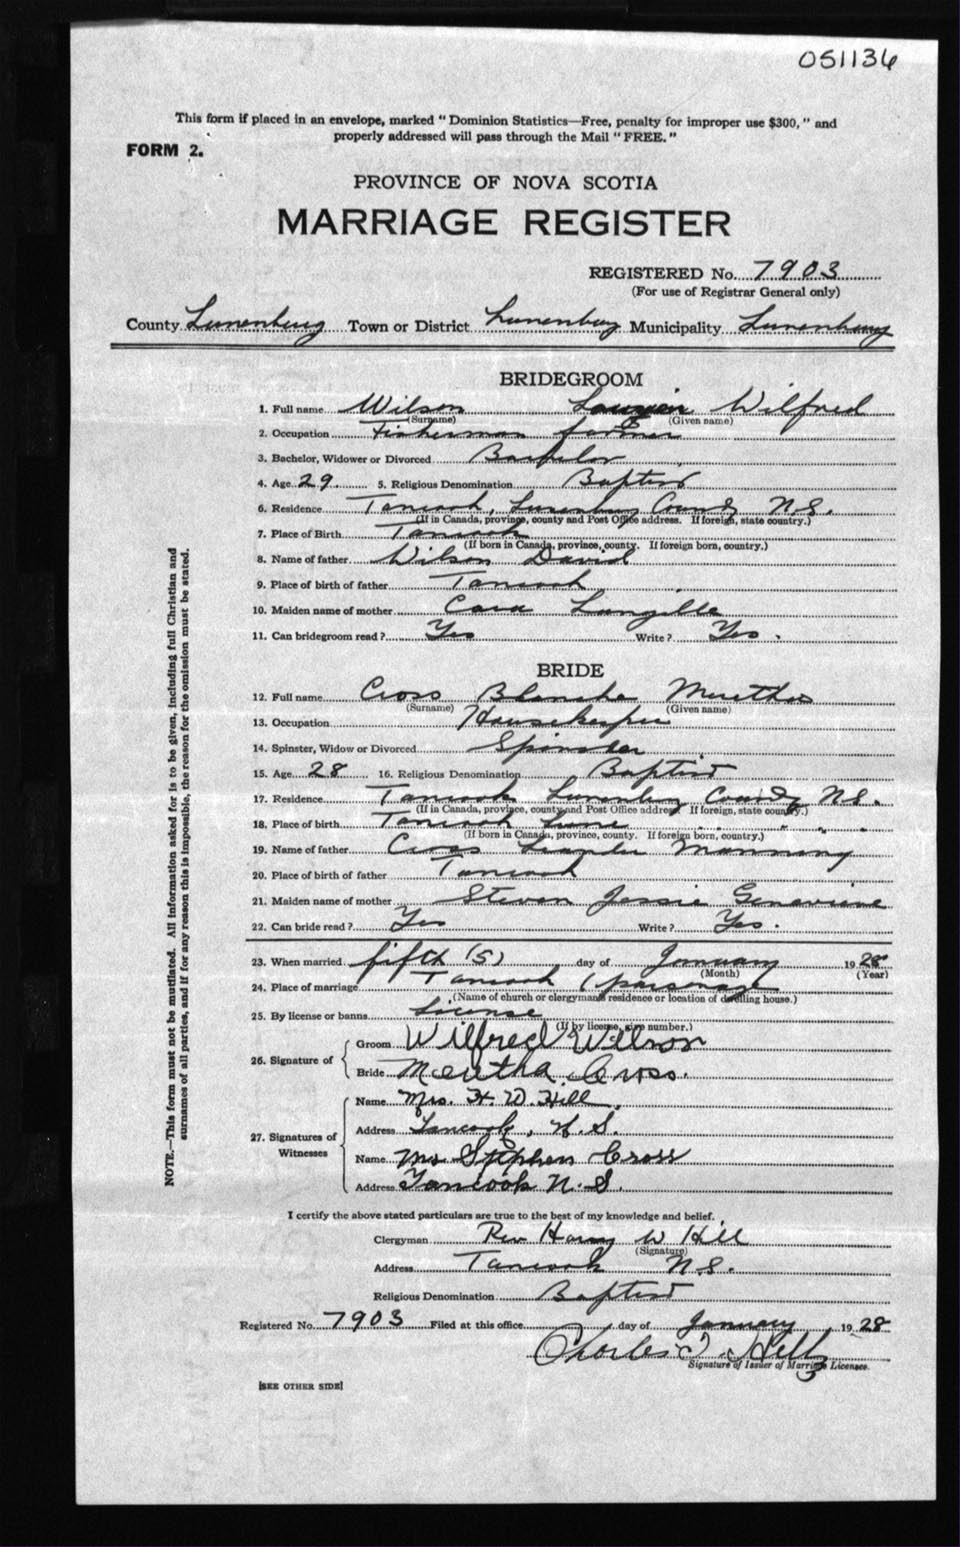 051136
This form if placed in an envelope, marked "Dominion Statistics—Free, penalty for improper use $300," and
properly addressed will pass through the Mail "FREE."
FORM 2.
PROVINCE OF NOVA SCOTIA
MARRIAGE REGISTER
REGISTERED No. 7903
(For use of Registrar General only)
County Lunenburg Town or District Lunenburg Municipality Lunenburg
BRIDEGROOM
1. Full name Wilson Wilfred
(Surname) (Given name)
2. Occupation Fisherman farmer
3. Bachelor, Widower or Divorced Bachelor
4. Age 29. 5. Religious Denomination Baptist
6. Residence Tancook, Lunenburg County N.S.
(If in Canada, province, county and Post Office address. If foreign, state country.)
7. Place of Birth Tancook
(If born in Canada, province, county. If foreign born, country.)
8. Name of father Wilson David
9. Place of birth of father Tancook
10. Maiden name of mother Cora Langille
11. Can bridegroom read? Yes Write? Yes.
BRIDE
12. Full name Cross Blanche Meretha
(Surname) (Given name)
13. Occupation Housekeeper
14. Spinster, Widow or Divorced Spinster
15. Age 28 16. Religious Denomination Baptist
17. Residence Tancook Lunenburg County N.S.
(If in Canada, province, county and Post Office address. If foreign, state country.)
18. Place of birth Tancook Lune " " "
(If born in Canada, province, county. If foreign born, country.)
19. Name of father Cross Leander Manning
20. Place of birth of father Tancook
21. Maiden name of mother Steven Jessie Genevieve
22. Can bride read? Yes Write? Yes.
23. When married fifth (5) day of January 1928
(Month) (Year)
24. Place of marriage Tancook (parsonage
(Name of church or clergyman's residence or location of dwelling house.)
25. By license or banns License
(If by license, give number.)
26. Signature of
Groom Wilfred Wilson
Bride Meretha Cross.
27. Signatures of
Witnesses
Name Mrs. H. W. Hill
Address Tancook, N.S.
Name Mrs Stephen Cross
Address Tancook N.S.
I certify the above stated particulars are true to the best of my knowledge and belief.
Clergyman Rev Harry W Hill
(Signature)
Address Tancook N.S.
Religious Denomination Baptist
Registered No. 7903 Filed at this office day of January 1928
Charles
Signature of Issuer of Marriage Licenses.
[SEE OTHER SIDE]
NOTE.—This form must not be mutilated. All information asked for is to be given, including full Christian and
surnames of all parties, and if for any reason this is impossible, the reason for the omission must be stated.